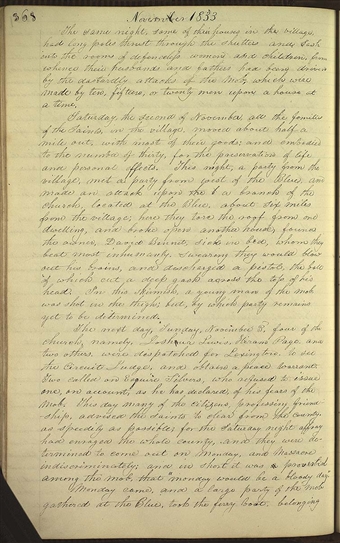 368
November 1833
The same night, some of their houses in the village,
had long poles thrust through the shutters and sash
into the rooms of defenceless women and children, from
whence their husbands and fathers had been driven
by the dastardly attacks of the mob, which were
made by ten, fifteen, or twenty men upon a house at
a time.
Saturday, the second of November all the families
of the Saints, in the village, moved about half a
mile out, with most of their goods; and embodied
to the number of thirty, for the preservation of life
and personal effects. This night, a party from the
village, met a party from west of the Blue, and
made an attack upon a branch of the
church, located at the Blue, about six miles
from the village; here they tore the roof from one
dwelling, and broke open another house, found
the owner, David Bennet, sick in bed, whom they
beat most inhumanly, swearing they would blow
out his brains, and discharged a pistol, the ball
of which cut a deep gash across the top of his
head. In this skirmish, a young man of the mob
was shot in the thigh; but, by which party remains
yet to be determined.
The next day, Sunday, November 3, four of the
church, namely, Joshua Lewis, Hiram Page, and
two others were despatched for Lexington, to see
the Circuit Judge, and obtain a peace warrant.
Two called on Esquire Silvers, who refused to issue
one, on account, as he has declared, of his fear of the
mob. This day many of the citizens, professing friend-
ship, advised the saints to clear from the county,
as speedily as possible; for the Saturday night affray
had enraged the whole county, and they were de-
termined to come out on Monday, and massacre
indiscriminately; and in short it was proverbial
among the mob, that "monday would be a bloody day."
Monday came, and a large party of the mob
gathered at the Blue, took the ferry boat, belonging